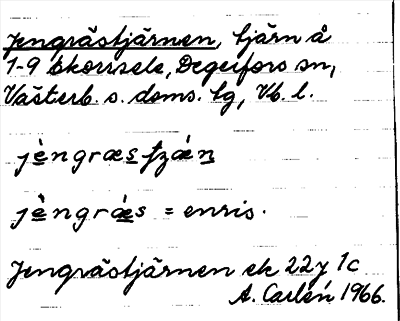 Jengrästjärnen, tjärn å
1-9 Ekorrsele, Degerfors sn,
Västerb. s. doms. lg, Vb. l.
jèngræs ʃzæ̀n
jèngræ̀s = enris.
Jengrästjärnen ek 22 J 1c
A. Carlén 1966.